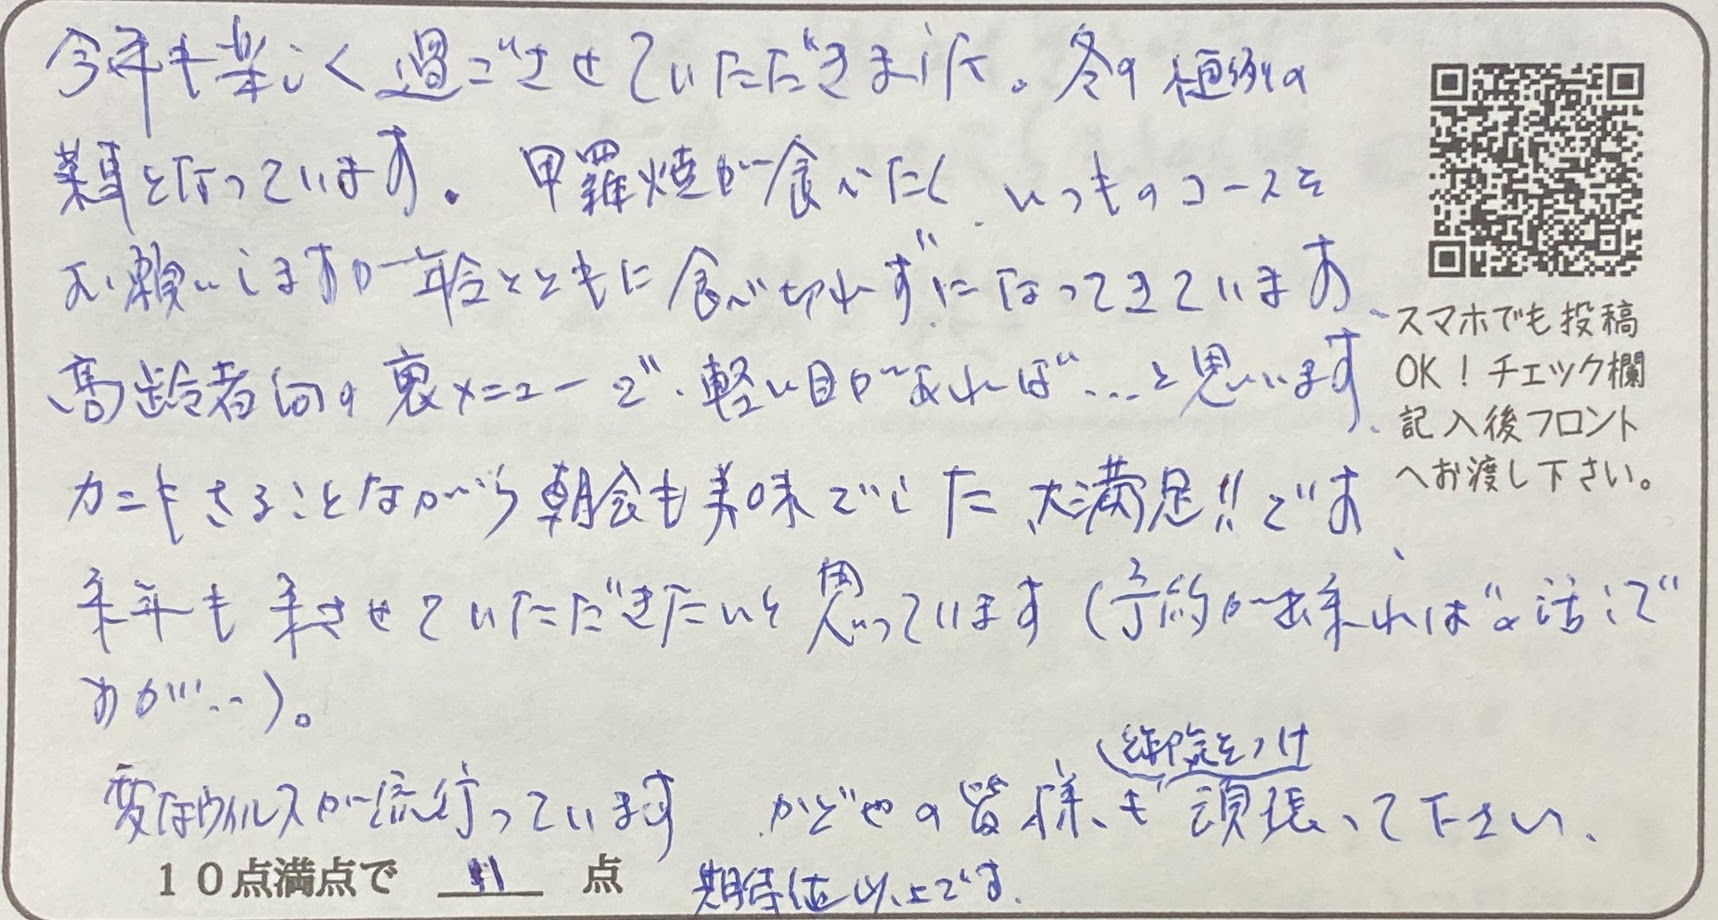 今年も楽しく過ごさせていただきました。冬の恒例の
業事となっています。甲羅焼が食べたく、いつものコースを
お願いしますが年令とともに食べ切れずになってきています、
高齢者向の裏メニューで、軽い目があれば…と思います、
カニもさることながら朝食も美味でした、大満足!!です、
来年も来させていただきたいと思っています(予約が出来ればの話しで
すが…)。
変なウイルスが流行っています かどやの皆様も 頑張って下さい、
をつけ
10点満点で 11 点 期待値以上です.
スマホでも投稿
OK!チェック欄
記入後フロント
へお渡し下さい。